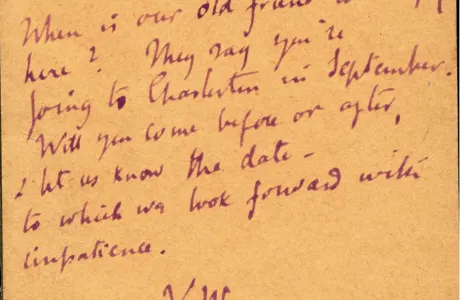 When is our old friend
here? They say you're
going to Charleston in September.
Will you come before or after,
& let us know the date -
to which we look forward with
impatience.
V.W.